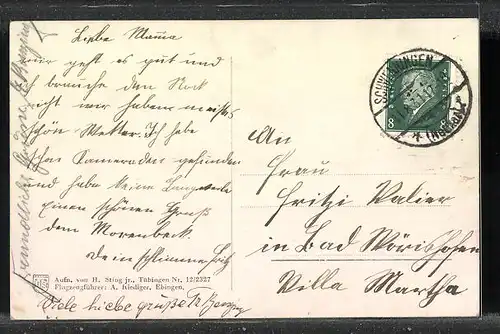 Liebe Mama
mir geht es gut und
ich brauche den Rock
nicht wir haben meistes
schön Wetter. Ich habe
schon Kameraden gefunden
und habe keine Langeweile
einen schönen Gruß
dem Morenbeck.
Dein schlimmer Fritz
Viele liebe Grüße
Aufn. von H. Sting jr., Tübingen Nr. 12/2327
Flugzeugführer: A. Riediger, Ebingen.
An
Frau
Fritzi Valier
in Bad Wörishofen
Villa Martha
SCHWENNINGEN
(Neckar)
8